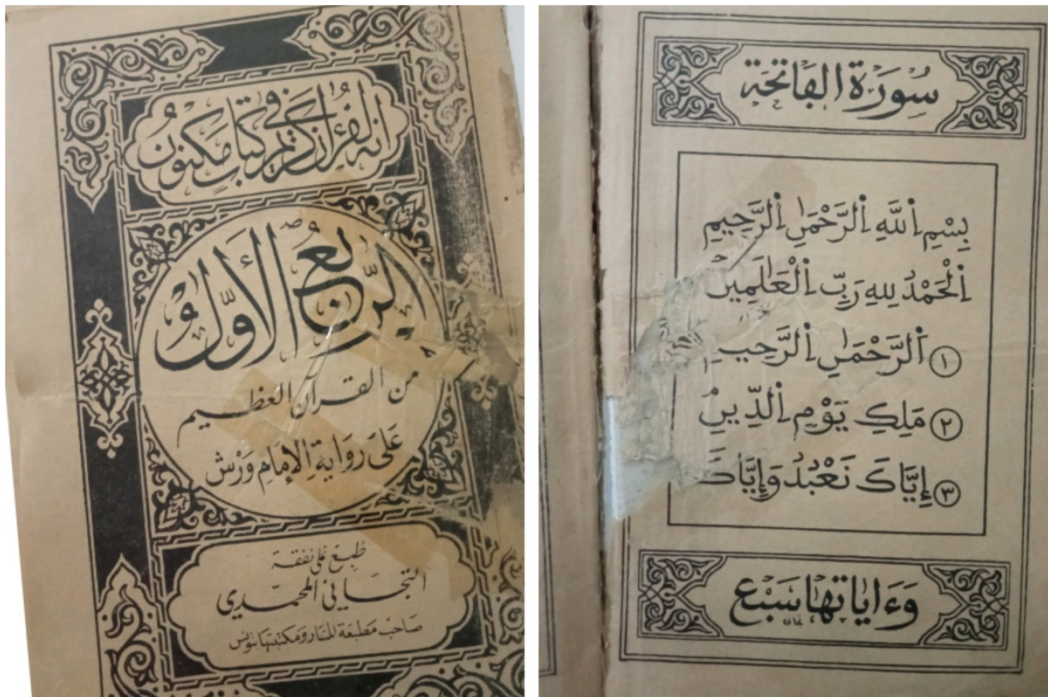 إنه لقرءان كريم في كتاب مكنون
الربع الأول
من القرآن العظيم
على رواية الإمام ورش
طبع على نفقة
التجاني المحمدي
صاحب مطبعة المنار ومكتبتها بتونس
سُورَةُ الفَاتِحَة
بِسْمِ اللَّهِ الرَّحْمَٰنِ الرَّحِيمِ
الْحَمْدُ لِلهِ رَبِّ الْعَٰلَمِينَ
① الرَّحْمَٰنِ الرَّحِيمِ
② مَلِكِ يَوْمِ الدِّينِ
③ إِيَّاكَ نَعْبُدُ وَإِيَّاكَ
وَءَايَاتُهَا سَبْع